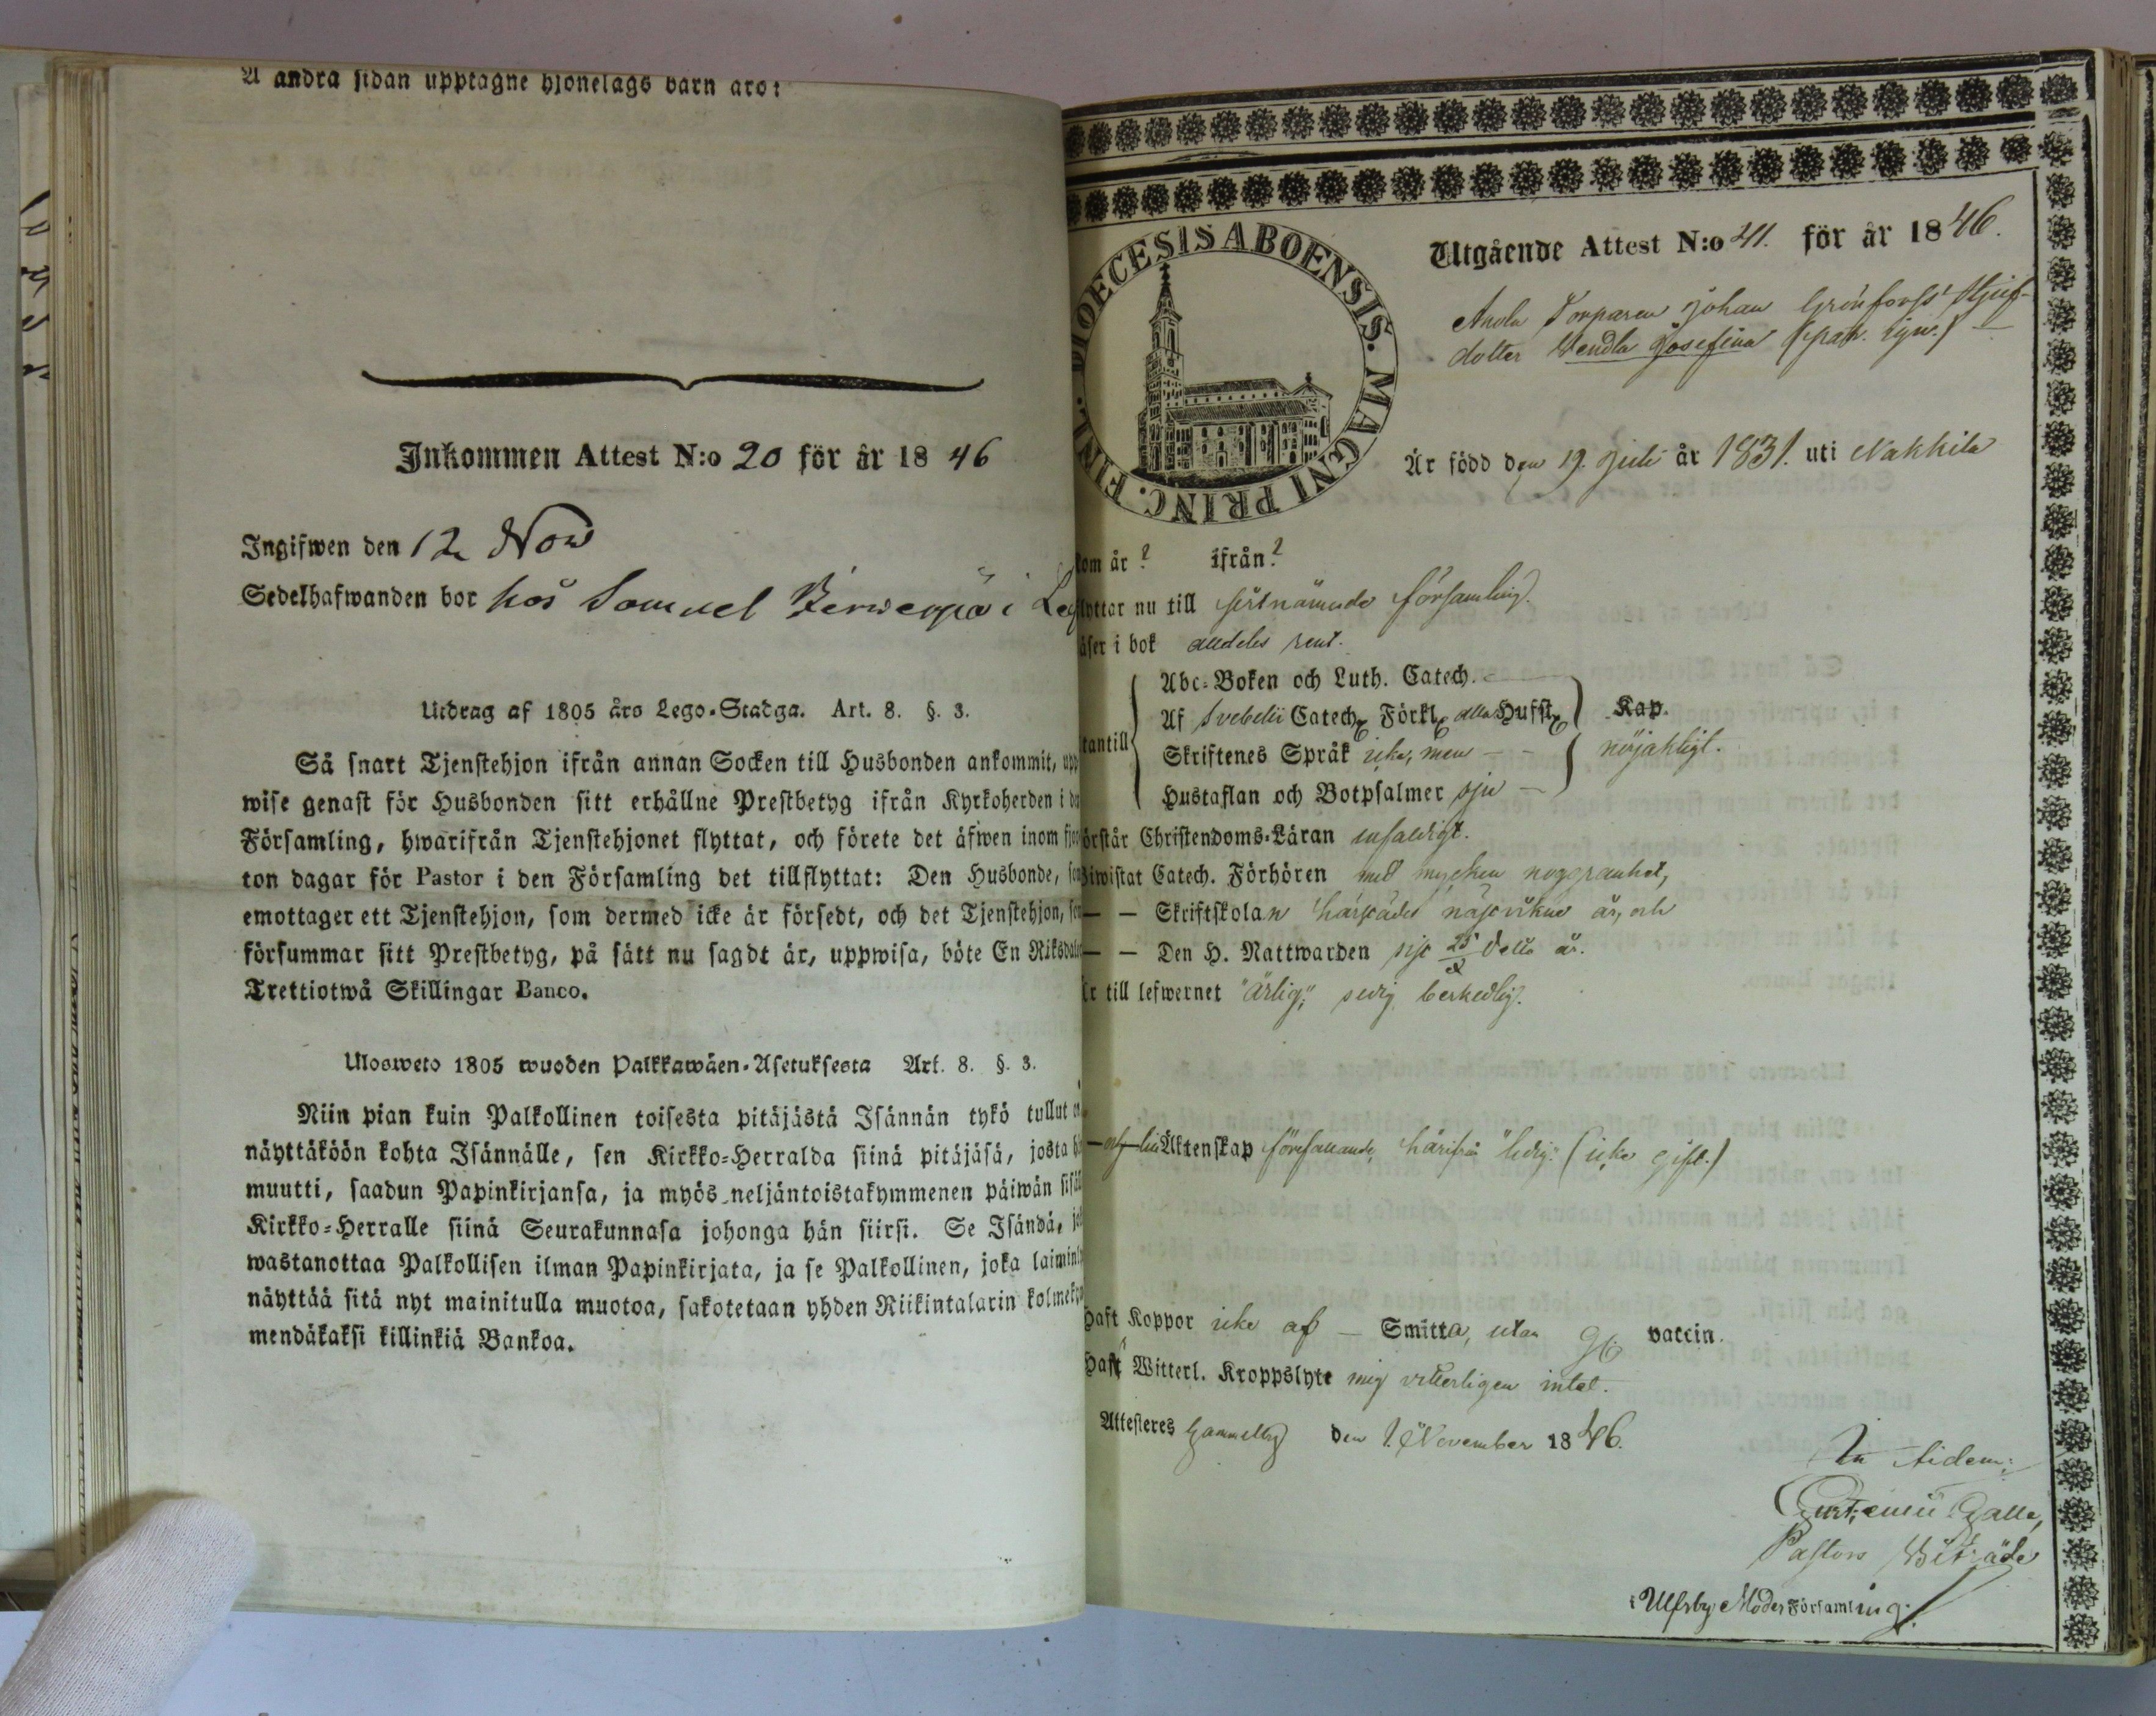 Å andra sidan upptagne hjonelags barn äro:
Inkommen Attest N:o 20 för år 1846
Ingifwen den 12 Nov
Sedelhafwanden bor hos Samuel i
Utdrag af 1805 års Lego-Stadga. Art. 8. §. 3.
Så snart Tjenstehjon ifrån annan Socken till Husbonden ankommit, upp
wise genast för Husbonden sitt erhållne Prestbetyg ifrån Kyrkoherden i
Församling, hwarifrån Tjenstehjonet flyttat, och förete det äfwen inom
ton dagar för Pastor i den Församling det tillflyttat: Den Husbonde,
emottager ett Tjenstehjon, som dermed icke är försedt, och det Tjenstehjon,
försummar sitt Prestbetyg, på sätt nu sagdt är, uppwisa, böte En Riksdaler
Trettiotwå Skillingar Banco.
Ulosweto 1805 wuoden Palkkawäen-Asetuksesta Art. 8. §. 3.
Niin pian kuin Palkollinen toisesta pitäjästä Isännän tykö tullut
näyttäköön kohta Isännälle, sen Kirkko-Herralda siinä pitäjäsä, josta
muutti, saadun Papinkirjansa, ja myös neljäntoistakymmenen päiwän
Kirkko-Herralle siinä Seurakunnasa johonga hän siirsi. Se Isändä,
wastanottaa Palkollisen ilman Papinkirjata, ja se Palkollinen, joka
näyttää sitä nyt mainitulla muotoa, sakotetaan yhden Riikintalarin
mendäkaksi killinkiä Bankoa.
DIOECESIS ABOENSIS. MAGNI PRINC. FINL.
Utgående Attest N:o 41. för år 1846.
Torparen Johan Grönforss' Stjuf-
dotter Wendla Josefina
Är född den 19. Juli år 1831. uti Nakkila
kom år? ifrån?
flyttar nu till sistnämnde församling.
läser i bok alldeles rent.
Abc-Boken och Luth. Catech.
Af Svebelii Catech. Förkl. alla Hufst. Kap.
utantill
Skriftenes Språk icke, men nöjaktigt.
Hustaflan och Botpsalmer sju
förstår Christendoms-Läran enfaldigt.
Biwistat Catech. Förhören med mycken noggranhet,
— — Skriftskolan härstädes år, och
— — Den H. Nattwarden sist 25 detta år.
Är till lefwernet "ärlig", sedig beskedlig.
Äktenskap förefallande, härifrån "ledig." (icke gift.)
Haft Koppor icke af — Smitta, utan vaccin.
Haft Witterl. Kroppslyte mig vitterligen intet.
Attesteres Gammelby den 1. November 1846.
In fidem:
Pastors Biträde
i Ulfsby Moder Församling.